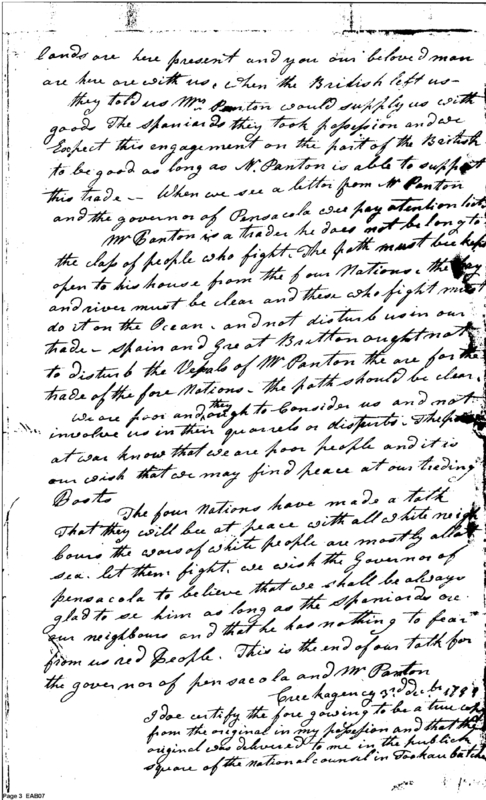 lands are here present and you our beloved man
are here are with us, when the British left us -
they told us Mr Panton would supply us with
goods The spaniards they took possession and we
Expect this engagement on the part of the British
to be good as long as N. Panton is able to support
this trade - When we see a letter from N Panton
and the governor of Pensacola wee pay atention to it
Mr Panton is a trader he does not be long to
the class of people who fight. The path must bee kept
open to his house from the four Nations. the
and river must be clear and these who fight must
do it on the Ocean. and not disturb us in our
trade - Spain and Great Britton ought not
to disturb the Vessals of Mr Panton the are for the
trade of the fore Nations - the path should be clear.
We are poor and they ought to Consider us and not
involve us in their quarrels or disputs. The
at war know that we are poor people and it is
our wish that we may find peace at our trading
Posts
The four Nations have made a talk
That they will bee at peace with all white neigh
bours the wars of white people are mostly all at
sea. let them fight. we wish the Governor of
pensacola to believe that we shall be always
glad to se him as long as the Spaniards are
our neighbours and that he has nothing to fear
from us red People. This is the end of our talk for
the governor of pensacola and Mr Panton
Creek agency 3rd Decbr
I doe certify the fore gowing to be a true copy
from the original in my possession and that the
original was delivered to me in the publick
square of the national counsel in Tookaubatche
Page 3 EAB07